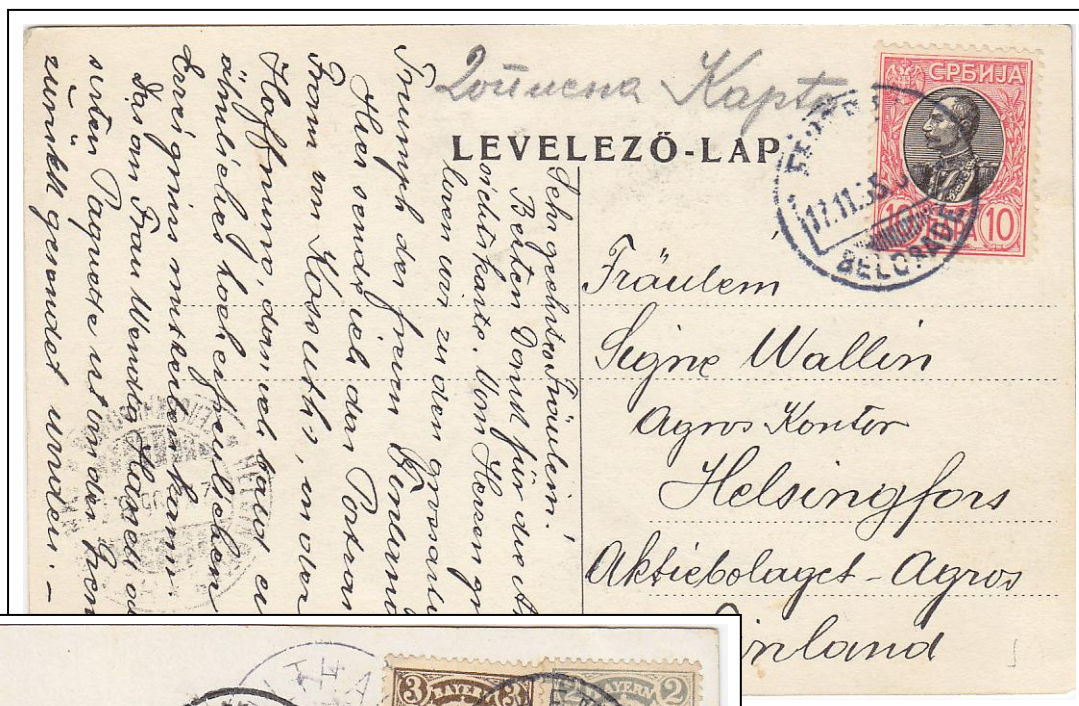 Дописна Карта
LEVELEZŐ-LAP
СРБИЈА
10 ПАРА 10
17.11.05
BELGRADE
Fräulein
Signe Wallin
Agros Kontor
Helsingfors
Aktiebolaget-Agros
Finland
Sehr geehrtes Fräulein!
Besten Dank für die
sichtskarte. Vom Herzen
zu dem
Triumph der freien
Hier sende ich das
von Kossuth, in der
Hoffnung, dass ich bald
ähnliches hocherfreulichen
Ereignis mitteilen kann.
Das an Frau Wendla
Paquette ist an der
zurück gesendet worden. –
3 BAYERN 3
2 BAYERN 2